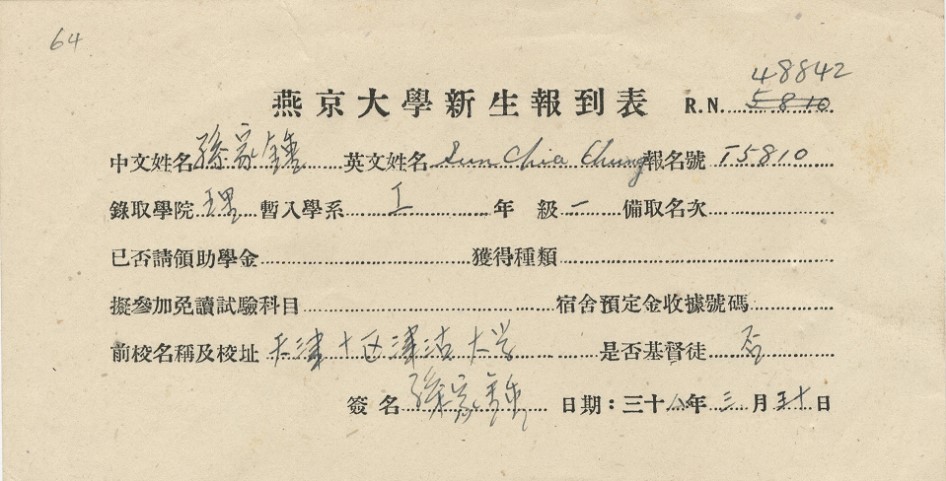 64
48842
燕京大學新生報到表 R.N. 5810
中文姓名 孫家鍾 英文姓名 Sun Chia Chung 報名號 T5810
錄取學院 理 暫入學系 工 年級 一 備取名次
已否請領助學金 獲得種類
擬參加免讀試驗科目 宿舍預定金收據號碼
前校名稱及校址 天津十区津沽大学 是否基督徒 否
簽名 孫家鍾 日期：三十八年 三 月 三十 日